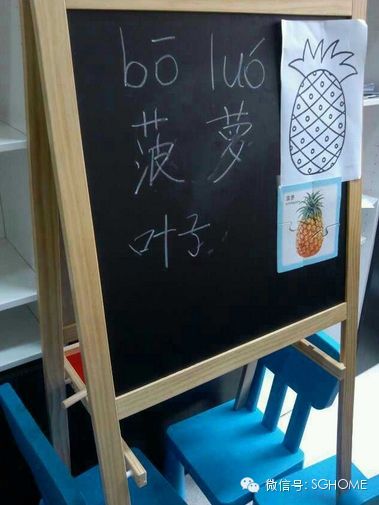 bō luó
菠 萝
叶子
微信号: SGHOME